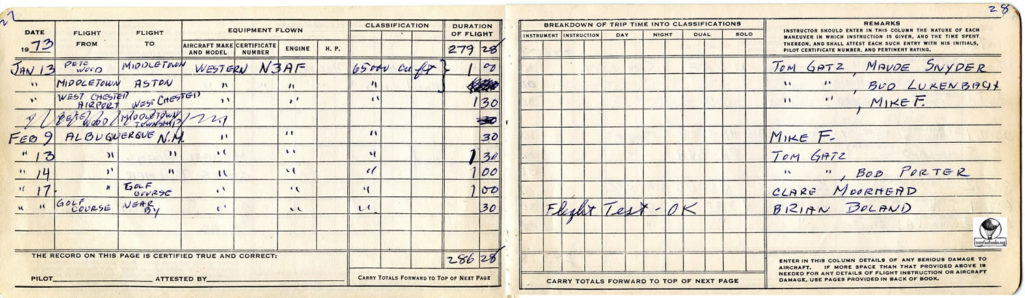 27
DATE
1973
FLIGHT FROM
FLIGHT TO
EQUIPMENT FLOWN
AIRCRAFT MAKE AND MODEL
CERTIFICATE NUMBER
ENGINE
H. P.
CLASSIFICATION
DURATION OF FLIGHT
279 28
JAN 13 PETE WOOD MIDDLETOWN WESTERN N3AF 65000 cu ft 1 00
" MIDDLETOWN ASTON " " " "
" WEST CHESTER AIRPORT WEST CHESTER " " " " 1 30
FEB 9 ALBUQUERQUE N.M. " " " " 30
" 13 " " " " " " 1 30
" 14 " " " " " " 1 00
" 17 " GOLF COURSE " " " " 1 00
" " GOLF COURSE NEAR BY " " " " 30
THE RECORD ON THIS PAGE IS CERTIFIED TRUE AND CORRECT:
286 28
PILOT ATTESTED BY
CARRY TOTALS FORWARD TO TOP OF NEXT PAGE
28
BREAKDOWN OF TRIP TIME INTO CLASSIFICATIONS
INSTRUMENT INSTRUCTION DAY NIGHT DUAL SOLO
REMARKS
INSTRUCTOR SHOULD ENTER IN THIS COLUMN THE NATURE OF EACH
MANEUVER IN WHICH INSTRUCTION IS GIVEN, AND THE TIME SPENT
THEREON, AND SHALL ATTEST EACH SUCH ENTRY WITH HIS INITIALS,
PILOT CERTIFICATE NUMBER, AND PERTINENT RATING.
TOM GATZ, MAUDE SNYDER
" ", BUD LUKENBACH
, MIKE F.
MIKE F.
TOM GATZ
" ", BOB PORTER
CLARE MOORHEAD
Flight Test - OK BRIAN BOLAND
CARRY TOTALS FORWARD TO TOP OF NEXT PAGE
ENTER IN THIS COLUMN DETAILS OF ANY SERIOUS DAMAGE TO
AIRCRAFT. IF MORE SPACE THAN THAT PROVIDED ABOVE IS
NEEDED FOR ANY DETAILS OF FLIGHT INSTRUCTION OR AIRCRAFT
DAMAGE, USE PAGES PROVIDED IN BACK OF BOOK.